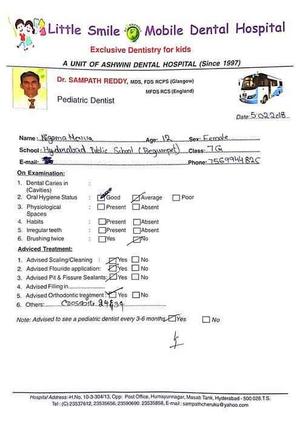 Little Smile Mobile Dental Hospital
Exclusive Dentistry for kids
A UNIT OF ASHWINI DENTAL HOSPITAL (Since 1997)
Dr. SAMPATH REDDY, MDS, FDS RCPS (Glasgow)
MFDS RCS (England)
Pediatric Dentist
Date: 5022018
Name: Age: 12 Sex: Female
School: Hyderabad Public School (Begumpet) Class: 7G
E-mail: Phone: 7569944825
On Examination:
1. Dental Caries in :
(Cavities)
2. Oral Hygiene Status : Good Average Poor
3. Physiological : Present Absent
Spaces
4. Habits : Present Absent
5. Irregular teeth : Present Absent
6. Brushing twice : Yes No
Adviced Treatment:
1. Advised Scaling/Cleaning : Yes No
2. Advised Flouride application: Yes No
3. Advised Pit & Fissure Sealants: Yes No
4. Advised Filling in
5. Advised Orthodontic treatment: Yes No
6. Others: Crossbite
Note: Advised to see a pediatric dentist every 3-6 months. Yes No
Hospital Address: H.No. 10-3-304/13, Opp: Post Office, Humayunnagar, Masab Tank, Hyderabad - 500 028.T.S.
Tel: (C) 23537612, 23535656, 23590690. 23535858, E-mail : sampathcheruku@yahoo.com